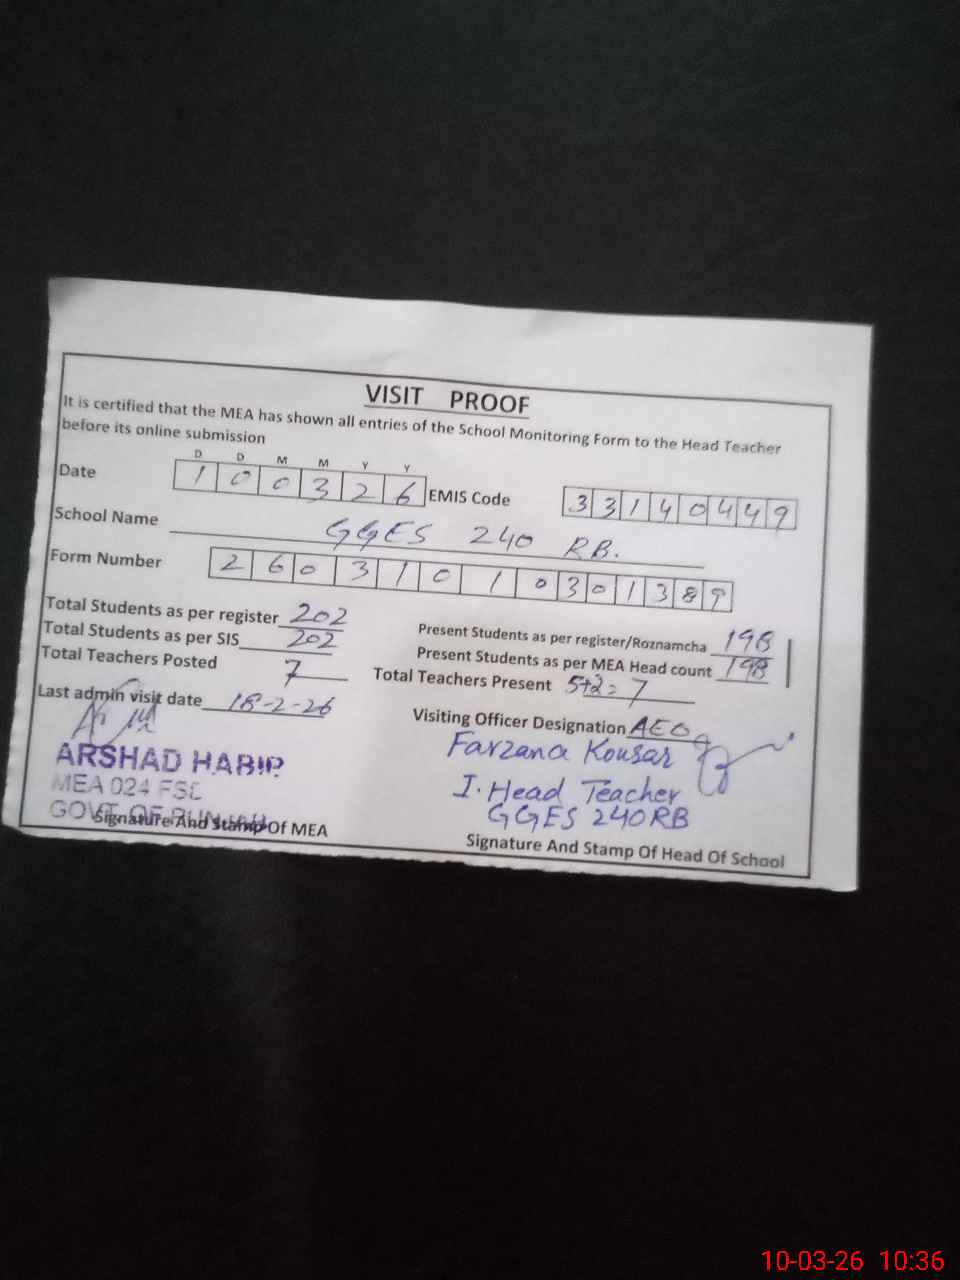 VISIT PROOF
It is certified that the MEA has shown all entries of the School Monitoring Form to the Head Teacher
before its online submission
D D M M Y Y
Date 1 0 0 3 2 6 EMIS Code 3 3 1 4 0 4 4 9
School Name GGES 240 RB.
Form Number 2 6 0 3 1 0 1 0 3 0 1 3 8 9
Total Students as per register 202 Present Students as per register/Roznamcha 198
Total Students as per SIS 202 Present Students as per MEA Head count 198
Total Teachers Posted 7 Total Teachers Present 5+2=7
Last admin visit date 18-2-26 Visiting Officer Designation AEO
ARSHAD HABIB Farzana Kousar
MEA 024 FSD I. Head Teacher
GOVT OF PUNJAB GGES 240RB
Signature And Stamp Of MEA Signature And Stamp Of Head Of School
10-03-26 10:36